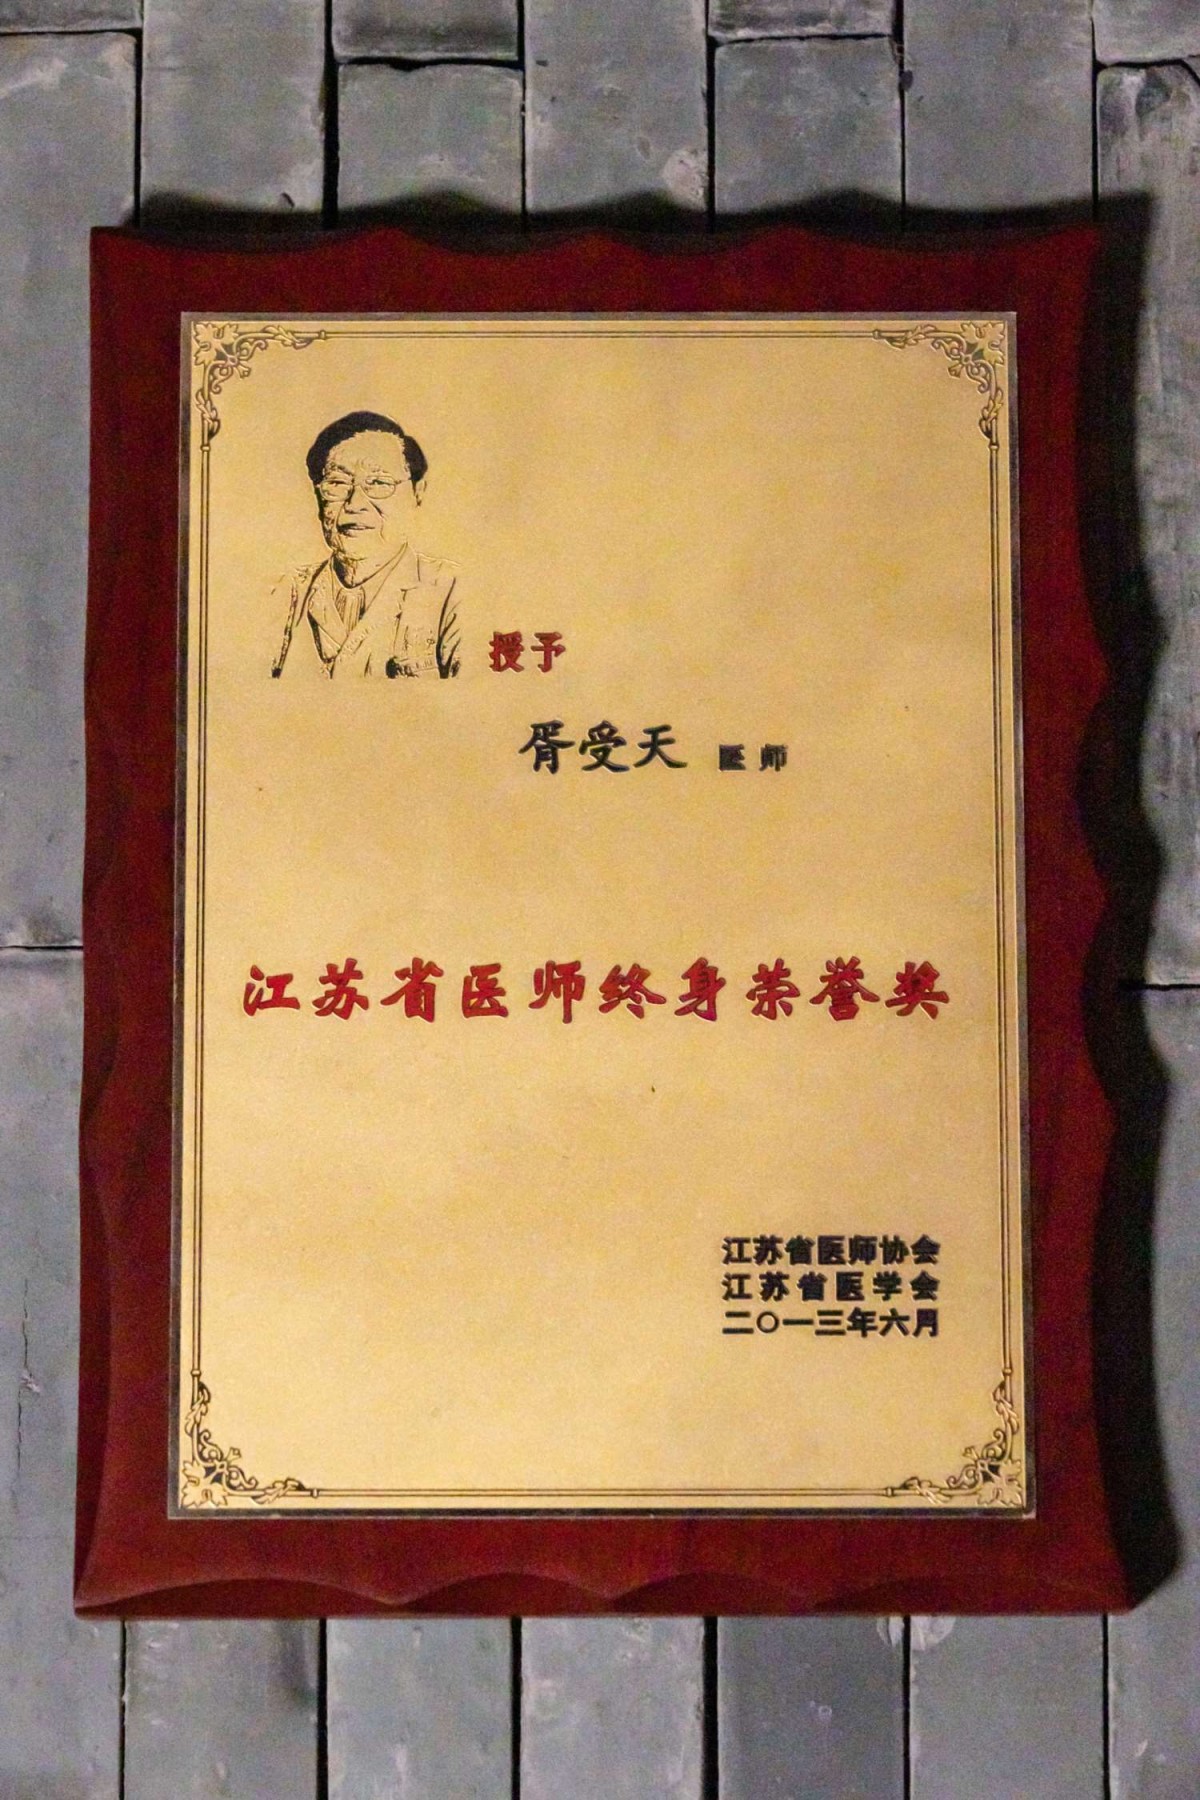 授予
胥受天 医师
江苏省医师终身荣誉奖
江苏省医师协会
江苏省医学会
二〇一三年六月